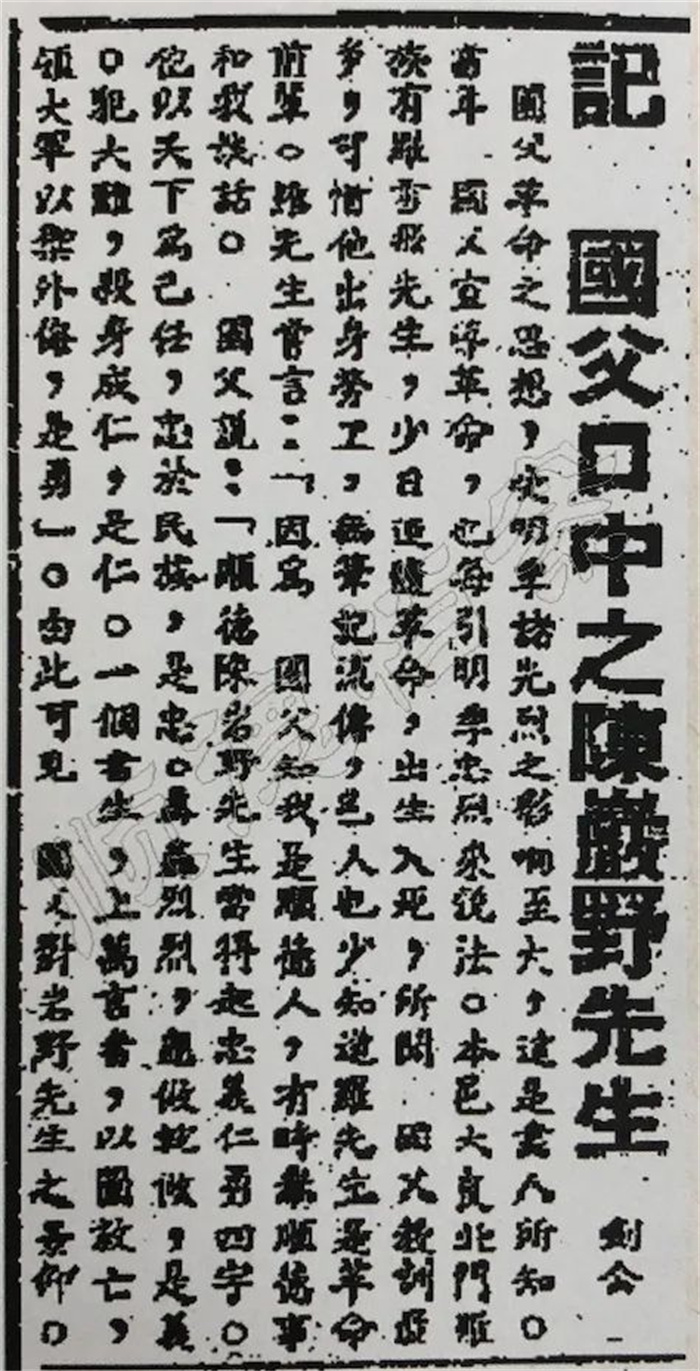 記　國父口中之陳巖野先生
劍公
國父革命之思想，受明季諸先烈之影响至大，這是盡人所知。
當年　國父宣導革命，也每引明季忠烈來說法。本邑大良北門羅
族有羅雪飛先生，少日追隨革命，出生入死，所聞　國父教訓
多，可惜他出身勞工，無筆記流傳，邑人也少知道羅先生是革命
前輩。羅先生嘗言：「因爲　國父知我是順德人，有時舉順德事
和我談話。　國父說：「順德陳岩野先生當得起忠義仁勇四字。
他以天下爲己任，忠於民族，是忠。轟轟烈烈，應做就做，是義
。犯大難，殺身成仁，是仁。一個書生，上萬言書，以圖救亡，
領大軍以禦外侮，是勇」。由此可見　國父對岩野先生之景仰。
顺德档案